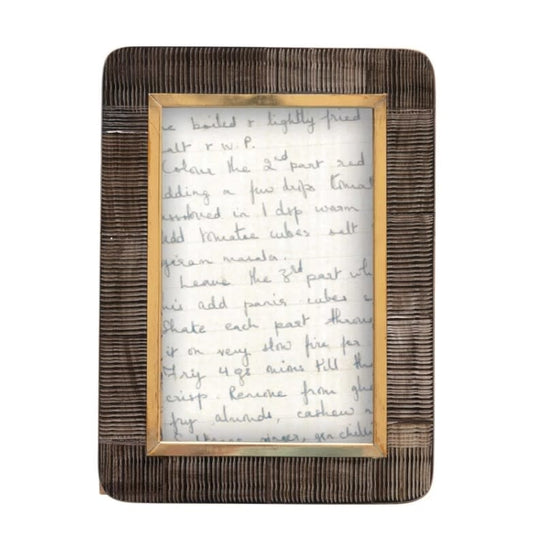 e boiled & lightly fried
alt & w.P.
Colour the 2nd part red
dding a few drops tomat
ssolved in 1 dsp warm
add tomatoe cubes salt
garam masala.
Leave the 3rd part wh
add panir cubes
Shake each part throu
it on very slow fire for
Fry 4 onions till th
crisp. Remove from ghe
fry almonds, cashew n
ginger, gr. chilli